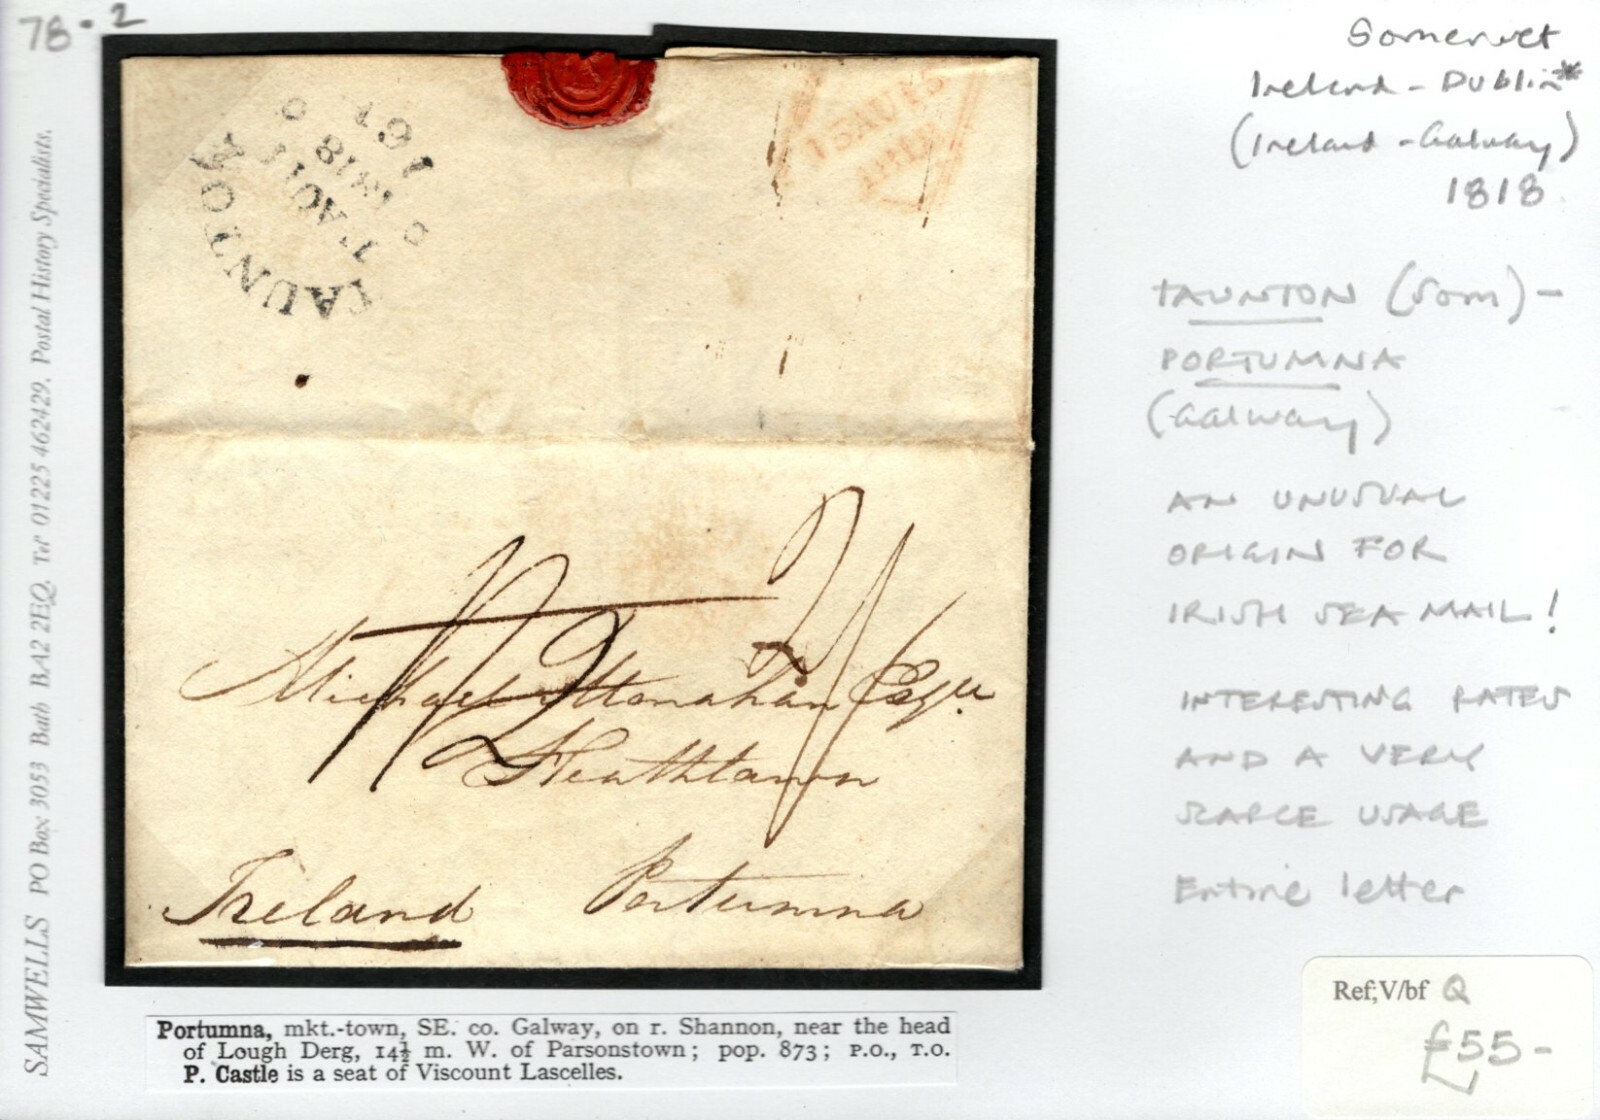 78.2
Somerset
Ireland - Dublin*
(Ireland - Galway)
1818
SAMWELLS PO Box 3053 Bath BA2 2EQ. Tel' 01225 462429. Postal History Specialists.
TAUNTON
11 AU 11
1818
161
TAUNTON (Som) -
PORTUMNA
(Galway)
AN UNUSUAL
ORIGIN FOR
IRISH SEA MAIL!
INTERESTING RATES
AND A VERY
SCARCE USAGE
Entire letter
Michael Monahan Esqr.
Heathlawn
Ireland Portumna
Ref;V/bf Q
£55-
Portumna, mkt.-town, SE. co. Galway, on r. Shannon, near the head
of Lough Derg, 14½ m. W. of Parsonstown; pop. 873; P.O., T.O.
P. Castle is a seat of Viscount Lascelles.